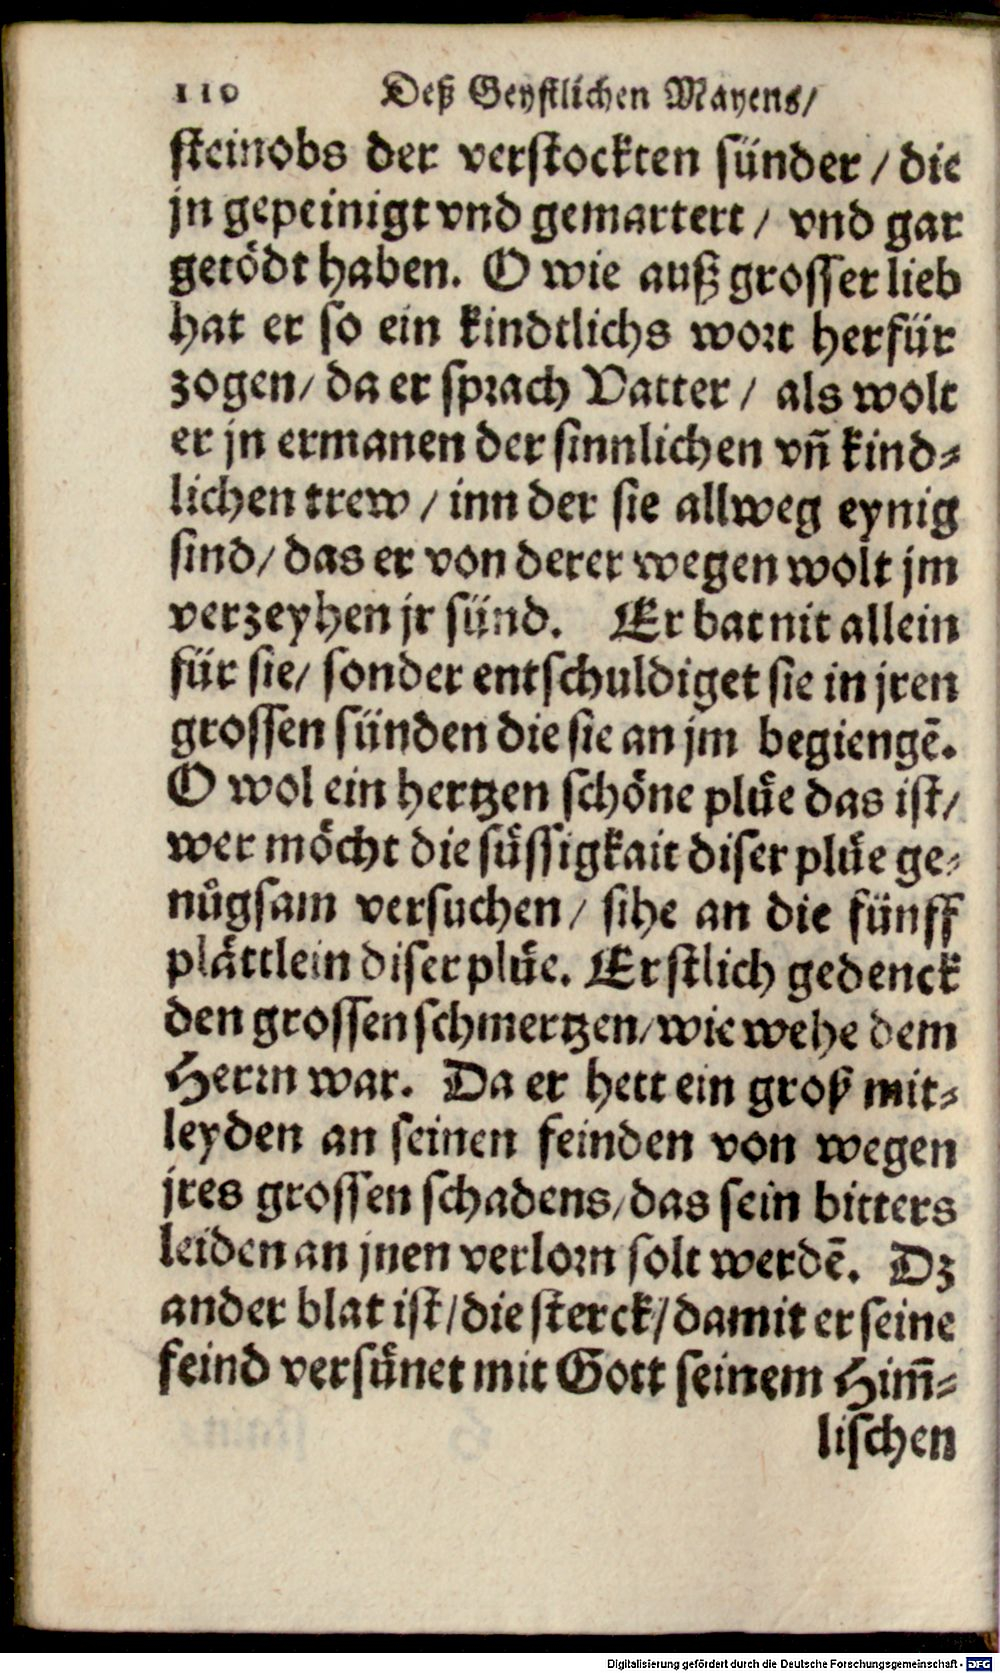 110 Deß Geystlichen Mayens/
steinobs der verstockten sünder / die
jn gepeinigt vnd gemartert / vnd gar
getödt haben. O wie auß grosser lieb
hat er so ein kindtlichs wort herfür
zogen/ da er sprach Vatter / als wolt
er jn ermanen der sinnlichen vñ kind⸗
lichen trew / inn der sie allweg eynig
sind/ das er von derer wegen wolt jm
verzeyhen jr sünd. Er bat nit allein
für sie/ sonder entschuldiget sie in jren
grossen sünden die sie an jm begiengē.
O wol ein hertzen schöne plüe das ist/
wer möcht die süssigkait diser plüe ge⸗
nůgsam versuchen / sihe an die fünff
plättlein diser plüe. Erstlich gedenck
den grossen schmertzen/ wie wehe dem
Herrn war. Da er hett ein groß mit⸗
leyden an seinen feinden von wegen
jres grossen schadens/ das sein bitters
leiden an jnen verlorn solt werdē. Dz
ander blat ist/ die sterck/ damit er seine
feind versünet mit Gott seinem Him̄⸗
lischen
Digitalisierung gefördert durch die Deutsche Forschungsgemeinschaft - DFG